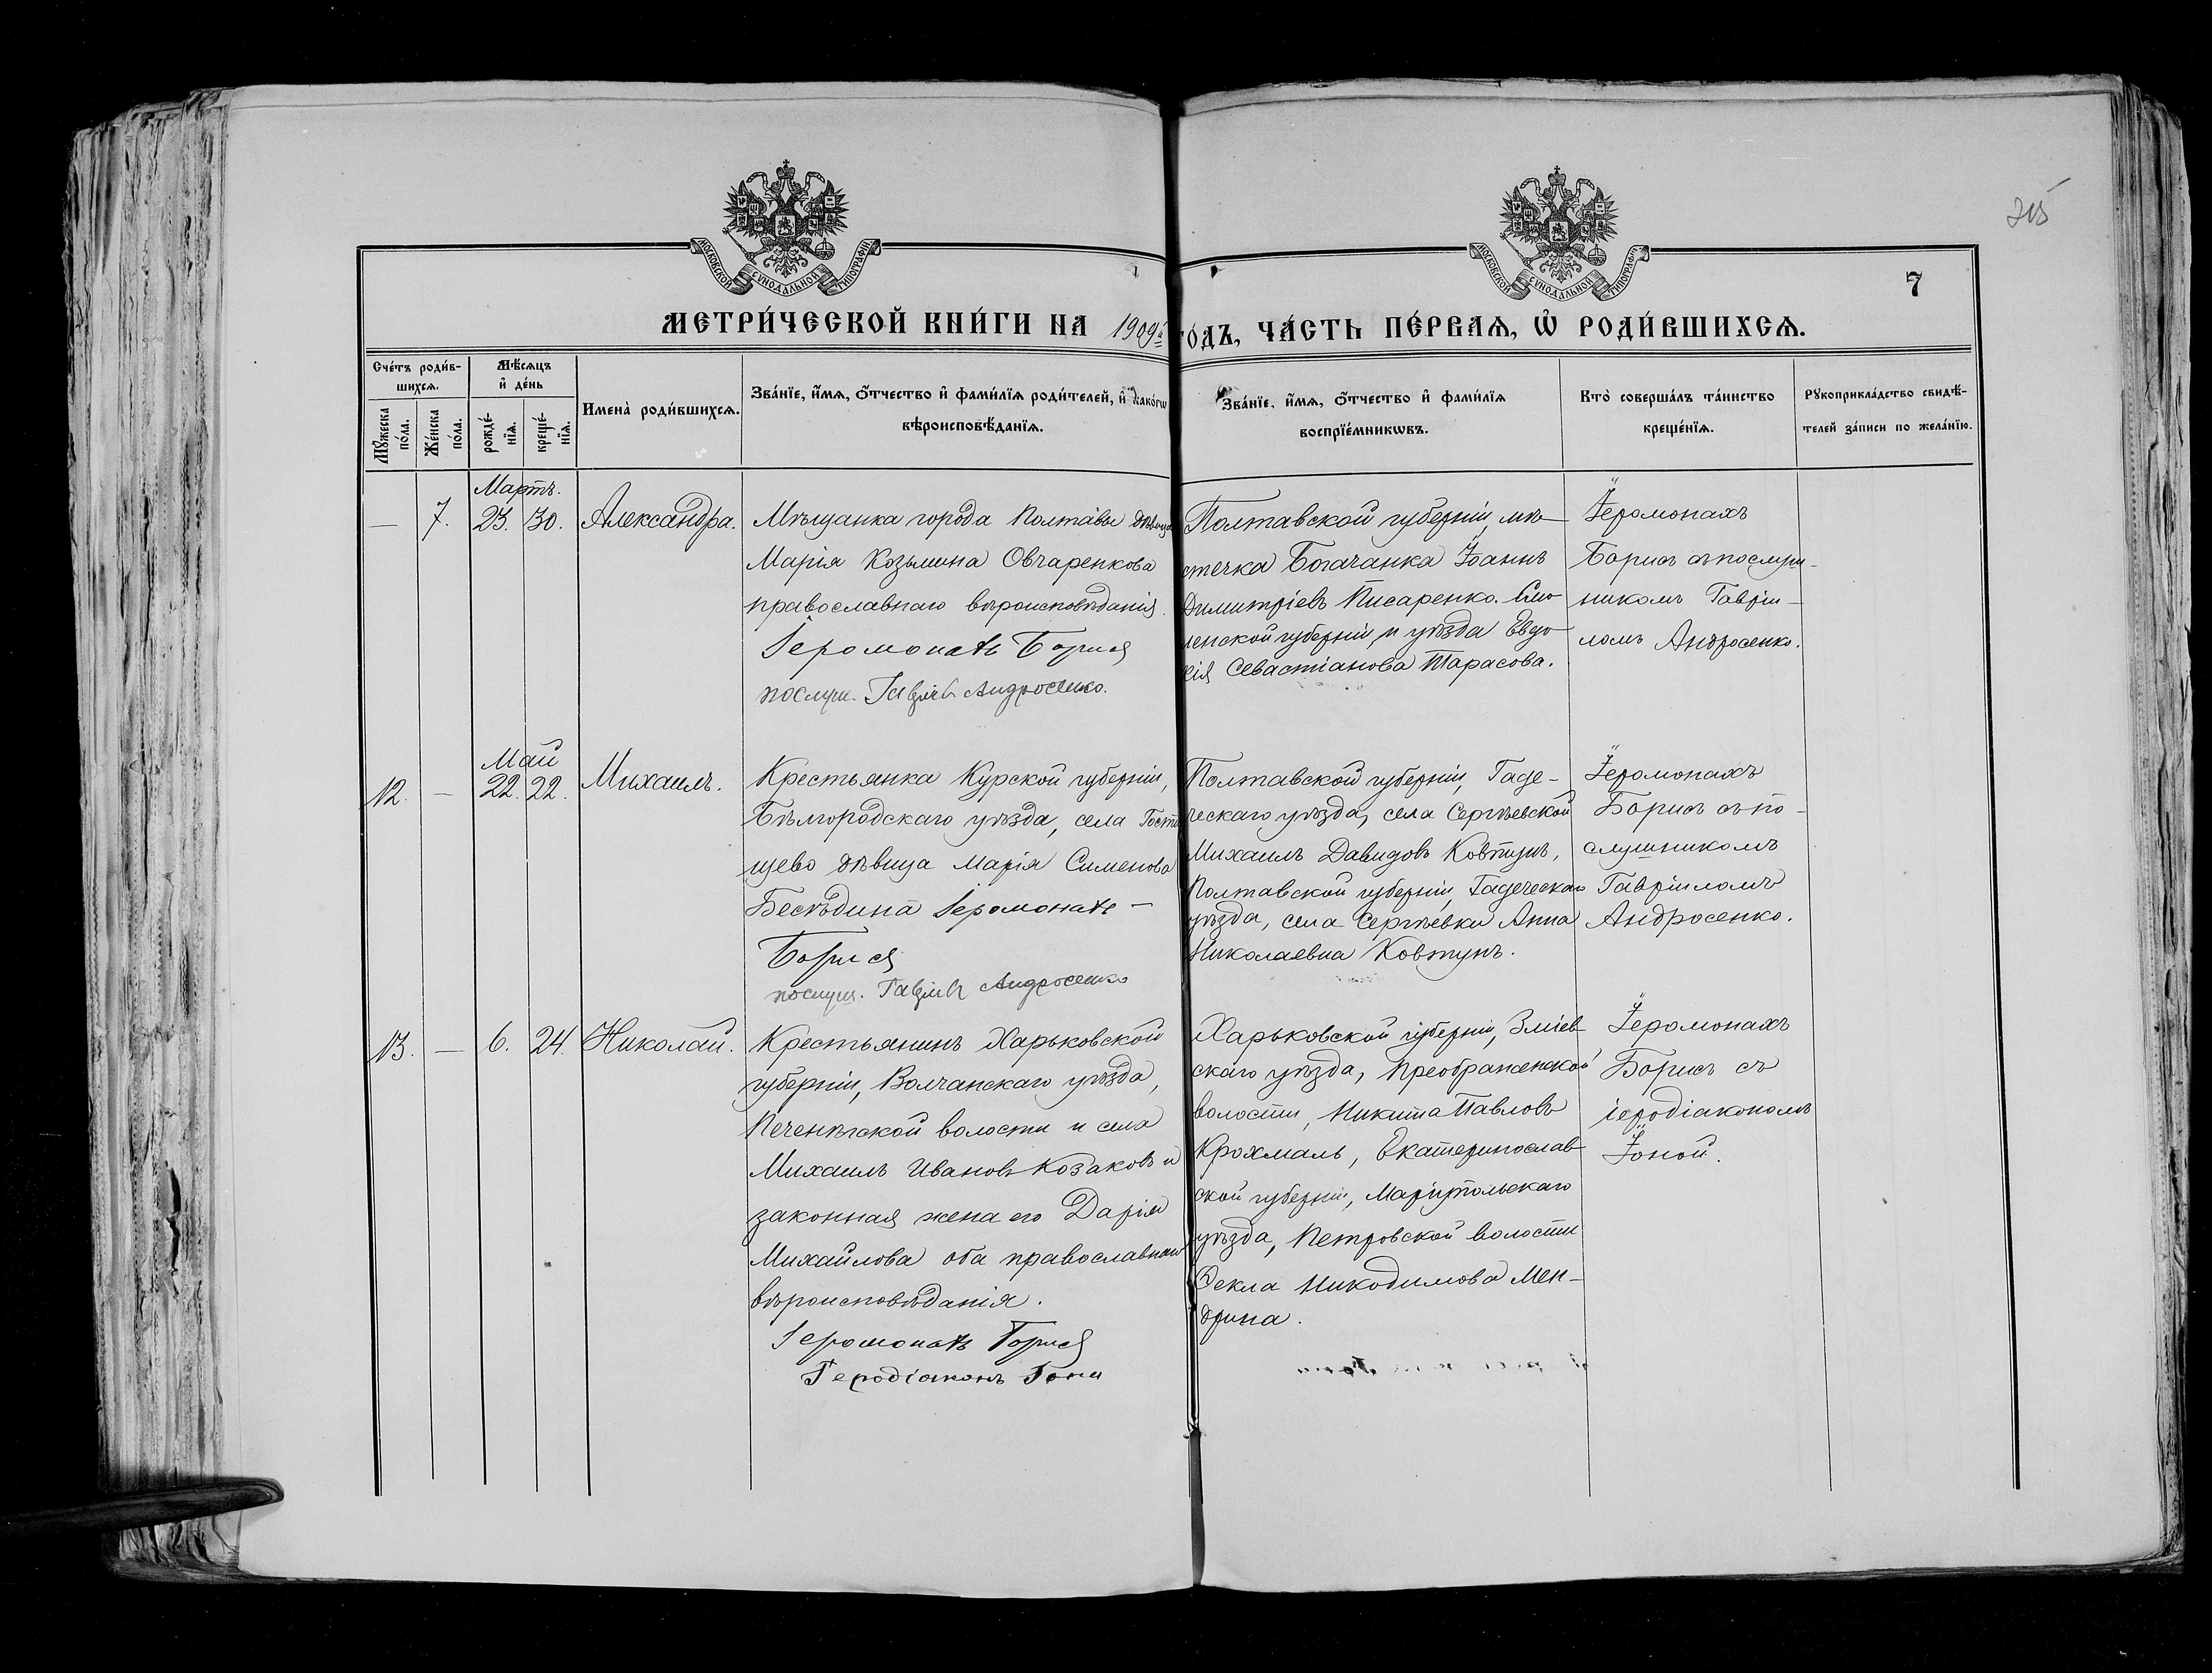 МОСКОВСКОЙ СУНОДАЛЬНОЙ ТИПОГРАФІИ
МОСКОВСКОЙ СУНОДАЛЬНОЙ ТИПОГРАФІИ
7
МЕТРИ́ЧЕСКОЙ КНИ́ГИ НА 1909й ГО́ДЪ, ЧА́СТЬ ПЕ́РВАѦ, Ѡ҆ РОДИ́ВШИХСѦ.
Сче́тъ роди́в-
шихсѧ.
Мꙋ́жеска по́ла.
Же́нска по́ла.
Мѣ́сѧцъ
и҆ де́нь
рожде́-
нїѧ.
креще́-
нїѧ.
Имена̀ роди́вшихсѧ.
Зва́нїе, и҆́мѧ, ѻ҆́тчество и҆ фами́лїѧ роди́телей, и҆ како́гѡ
вѣроисповѣ́данїѧ.
Зва́нїе, и҆́мѧ, ѻ҆́тчество и҆ фами́лїѧ
воспрїе́мникѡвъ.
Кто̀ соверша́лъ та́инство
креще́нїѧ.
Рꙋкоприкла́дство свидѣ́-
телей за́писи по жела́нїю.
Мартъ.
— 7. 23. 30. Александра.
Мѣщанка города Полтавы дѣвица
Марія Козьмина Овчаренкова
православнаго вѣроисповѣданія.
Іеромонахъ Борисъ
послуш. Гавріилъ Андросенко.
Полтавской губерніи, мѣ-
стечка Богачанка Іоаннъ
Димитріевъ Писаренко. Смо
ленской губерніи и уѣзда Евдо
кія Севастіанова Тарасова.
Іеромонахъ
Борисъ съ послуш-
никомъ Гавріи-
ломъ Андросенко.
Май
12. — 22. 22. Михаилъ.
Крестьянка Курской губерніи,
Бѣлгородскаго уѣзда, села Гости
щево дѣвица Марія Сименова
Бесѣдина Іеромонахъ —
Борисъ
послуш. Гавріилъ Андросенко
Полтавской губерніи, Гадя-
ческаго уѣзда, села Сергѣевской
Михаилъ Давидовъ Ковтунъ,
Полтавской губерніи, Гадеческаго
уѣзда, села Сергѣевки Анна
Николаевна Ковтунъ.
Іеромонахъ
Борисъ съ по-
слушникомъ
Гавріиломъ
Андросенко.
13. — 6. 24. Николай.
Крестьянинъ Харьковской
губерніи, Волчанскаго уѣзда,
Печенѣжской волости и села
Михаилъ Ивановъ Козаковъ и
законная жена его Дарія
Михайлова оба православнаго
вѣроисповѣданія.
Іеромонахъ Борисъ
Іеродіаконъ Іона
Харьковской губерніи, Зміев-
скаго уѣзда, Преображенской
волости, Никита Павловъ
Крохмаль, Екатеринослав-
ской губерніи, Маріупольскаго
уѣзда, Петровской волости
Ѳекла Никодимова Мен-
дрина.
Іеромонахъ
Борисъ съ
іеродіакономъ
Іоной.